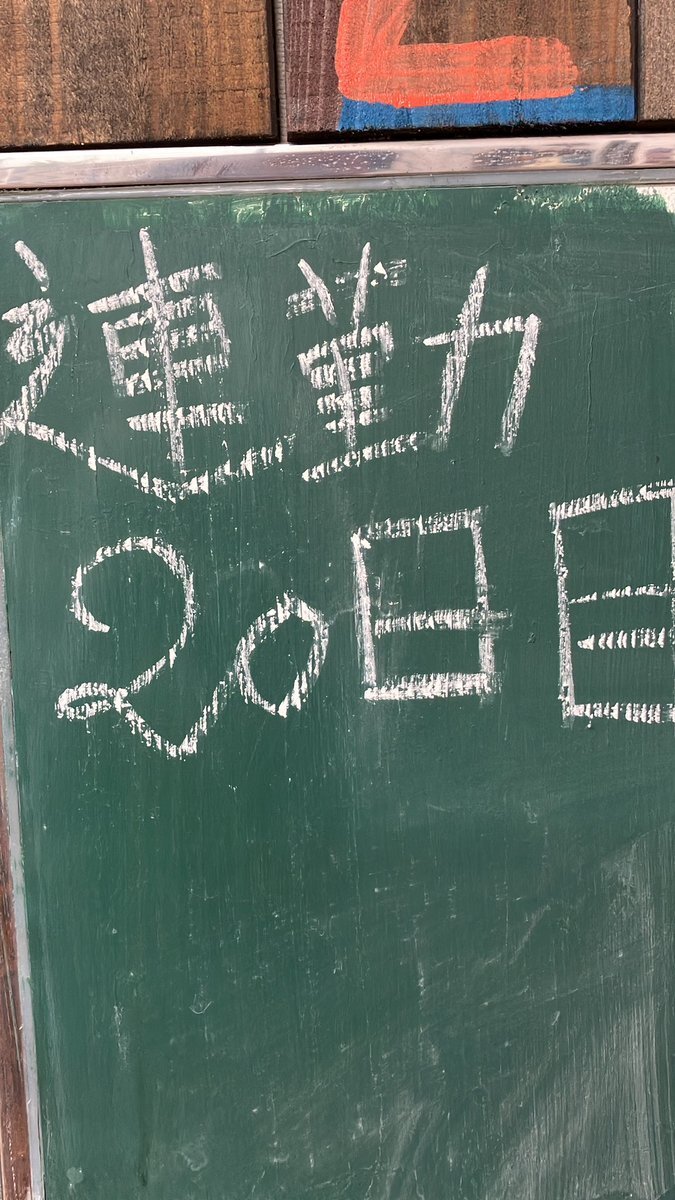 連勤
20日目